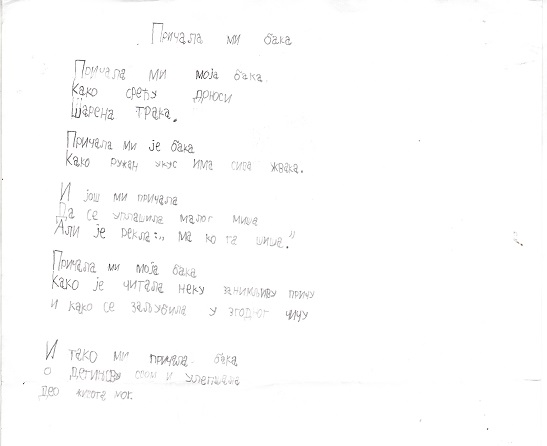 Причала ми бака
Причала ми моја бака.
Како срећу дрюси
Шарена трака.
Причала ми је бака
Како ружан укус има сива жвака.
И још ми причала
Да се уплашила малог миша
Али је рекла: „ ма ко га шиша.”
Причала ми моја бака
Како је читала неку занимљиву причу
и како се заљубила у згодног чичу
И тако ми причала бака
о детињству свом и улепшала
део живота мог.